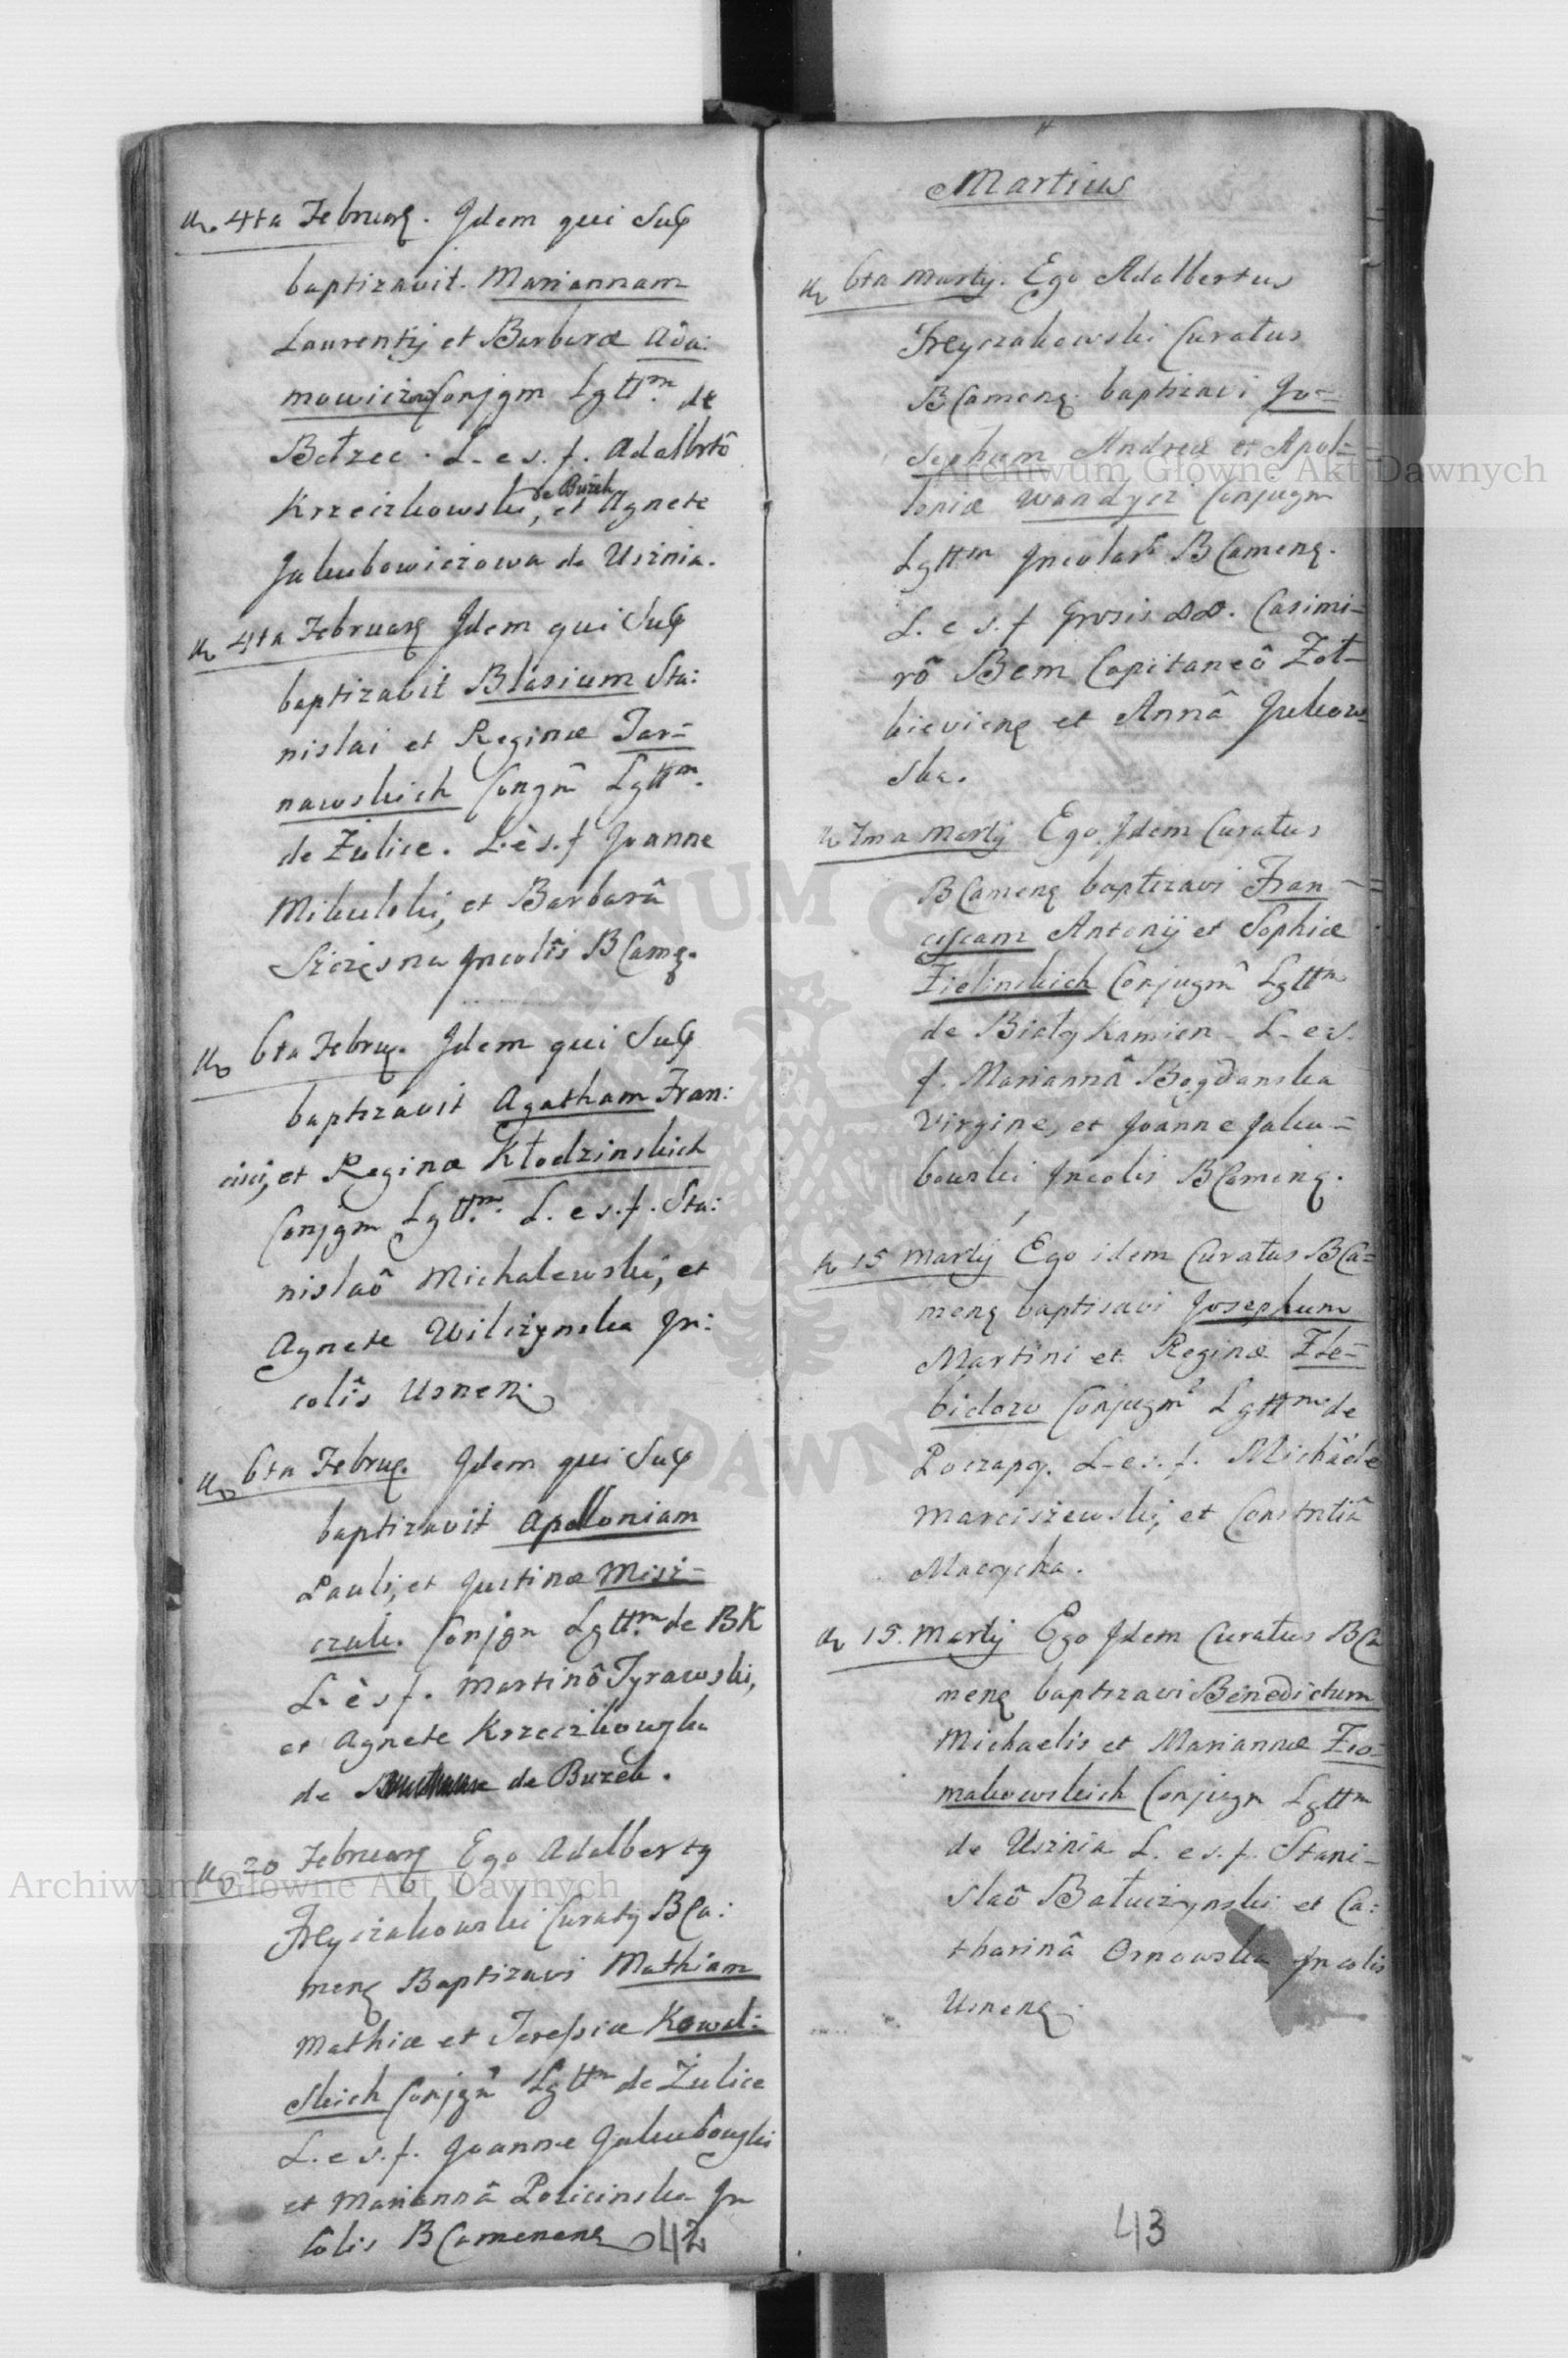 4ta Februarę. Idem qui Sup
baptizavit. Mariannam
Laurentij et Barbaræ Ada:
mowiczow Conjgm Lgttm. de
Bełzec. L. e s. f. Adalbtô
Krzeczkowski, de Buzek et Agnete
Jakubowiczowa de Usznia.
4ta Februarę Idem qui Sup
baptizavit Blasium Sta:
nislai et Reginæ Tar=
nawskich Congm̂ Lgttm.
de Żulice. L. è s. f Joanne
Mikulski, et Barbarâ
Szczęsna Incolis B Camę.
6ta Februę. Idem qui Sup
baptizavit Agatham Fran:
cisci, et Reginæ Kłodzinskich
Conjgm Lgttm. L. e s. f. Sta:
nislaô Michalewski, et
Agnete Wilczynska In:
colîs Usnen:
6ta Februę. Idem qui Sup
baptizavit Apolloniam
Pauli, et Justinæ Misz=
czuk. Conjgm Lgttm. de BK
L. è s f. Martinô Tyrawski,
et Agnete Krzeczkowska
de de Buzek.
20 Februarę Ego Adalbertę
Freyczakowski Curatę BCa:
menę Baptizavi Mathiam
Mathiæ et Teressiæ Kowal:
skich Conjgm̂ Lgttm de Żulice
L. e s. f. Joanne Jakubowski
et Mariannâ Policinska In
colis B Camenenę
42
Martius
6ta Martij. Ego Adalbertus
Freyczakowski Curatus
BCamenę baptizavi Jo=
sephum Andreæ et Apol=
loniæ Wandycz Conjugm
Lgttm Incolar̂ BCamenę.
L. e s. f Grosis DD. Casimi=
rô Bem Capitaneô Zoł=
kievienę et Annâ Jukow=
ska.
7ma Martij Ego Idem Curatus
BCamenę baptizavi Fran=
ciscam Antonij et Sophiæ
Zielinskich Conjugm̂ Lgttm
de Biały Kamien L. e s.
f. Mariannâ Bogdanska
Virgine, et Joanne Jaku=
bowski Incolis BCaminę.
15 Martij Ego idem Curatus BCa=
menę baptisavi Josephum
Martini et Reginæ Zde=
bidorw Conjugm̂ Lgttm de
Poczapy. L. e s. f. Michaele
Marciszewski, et Constntiâ
Macycha.
15. Martij Ego Idem Curatus BCa
menę baptizavi Benedictum
Michaelis et Mariannæ Zio=
makowskich Conjugm Lgttm
de Usznia L. e s. f. Stani=
slaô Bałuczynski et Ca:
tharinâ Ornowska Incolis
Usnenę.
43
Archiwum Główne Akt Dawnych
Archiwum Główne Akt Dawnych